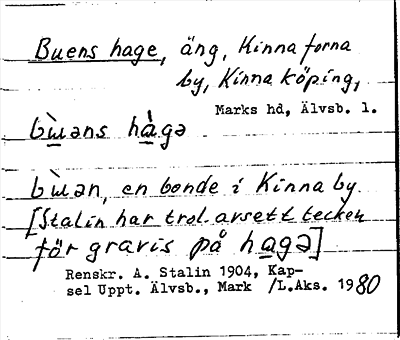 Buens hage, äng, Kinna forna
by, Kinna köping,
Marks hd, Älvsb. l.
bu̠̇əns hå̠̀gə
bu̠̇ən, en bonde i Kinna by.
[Stalin har trol. avsett tecken
för gravis på ha̠gə]
Renskr. A. Stalin 1904, Kap-
sel Uppt. Älvsb., Mark /L.Aks. 1980